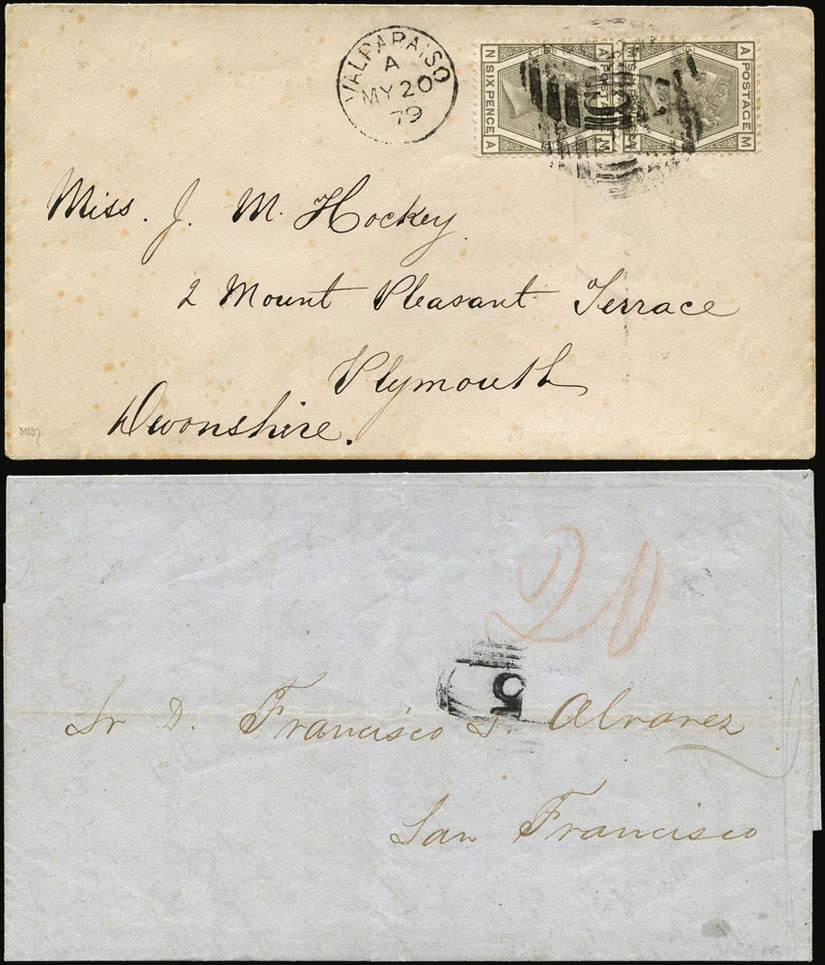 VALPARAISO
A
MY 20
79
N SIX PENCE A
A M
A POSTAGE M
Miss. J. M. Hockey
2 Mount Pleasant Terrace
Plymouth
Devonshire.
20
5
Sr D. Francisco Alvarez
San Francisco